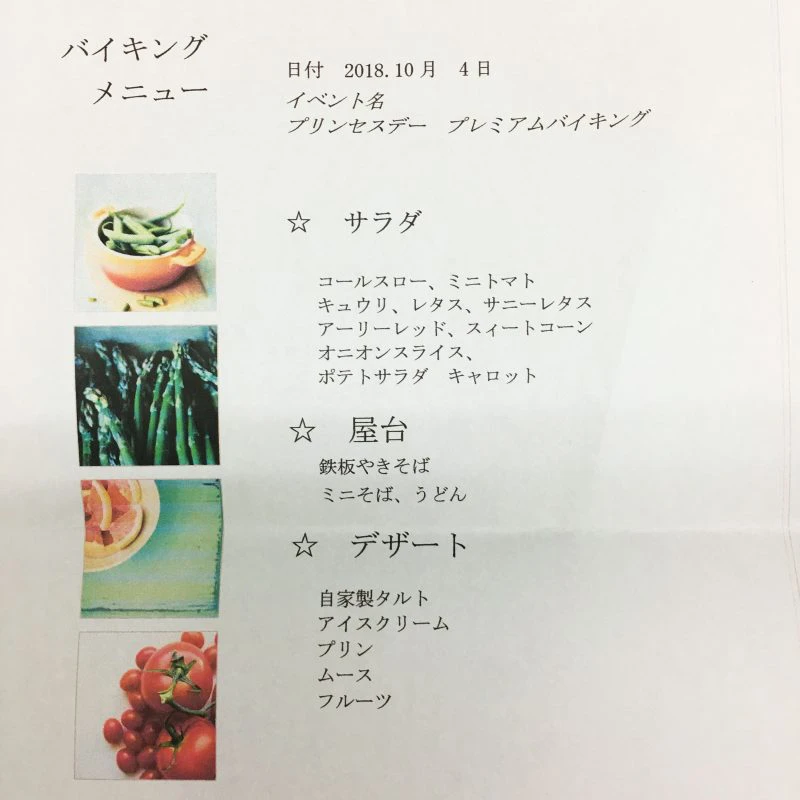 バイキング
メニュー
日付　2018.10月　4日
イベント名
プリンセスデー　プレミアムバイキング
☆　サラダ
コールスロー、ミニトマト
キュウリ、レタス、サニーレタス
アーリーレッド、スィートコーン
オニオンスライス、
ポテトサラダ　キャロット
☆　屋台
鉄板やきそば
ミニそば、うどん
☆　デザート
自家製タルト
アイスクリーム
プリン
ムース
フルーツ